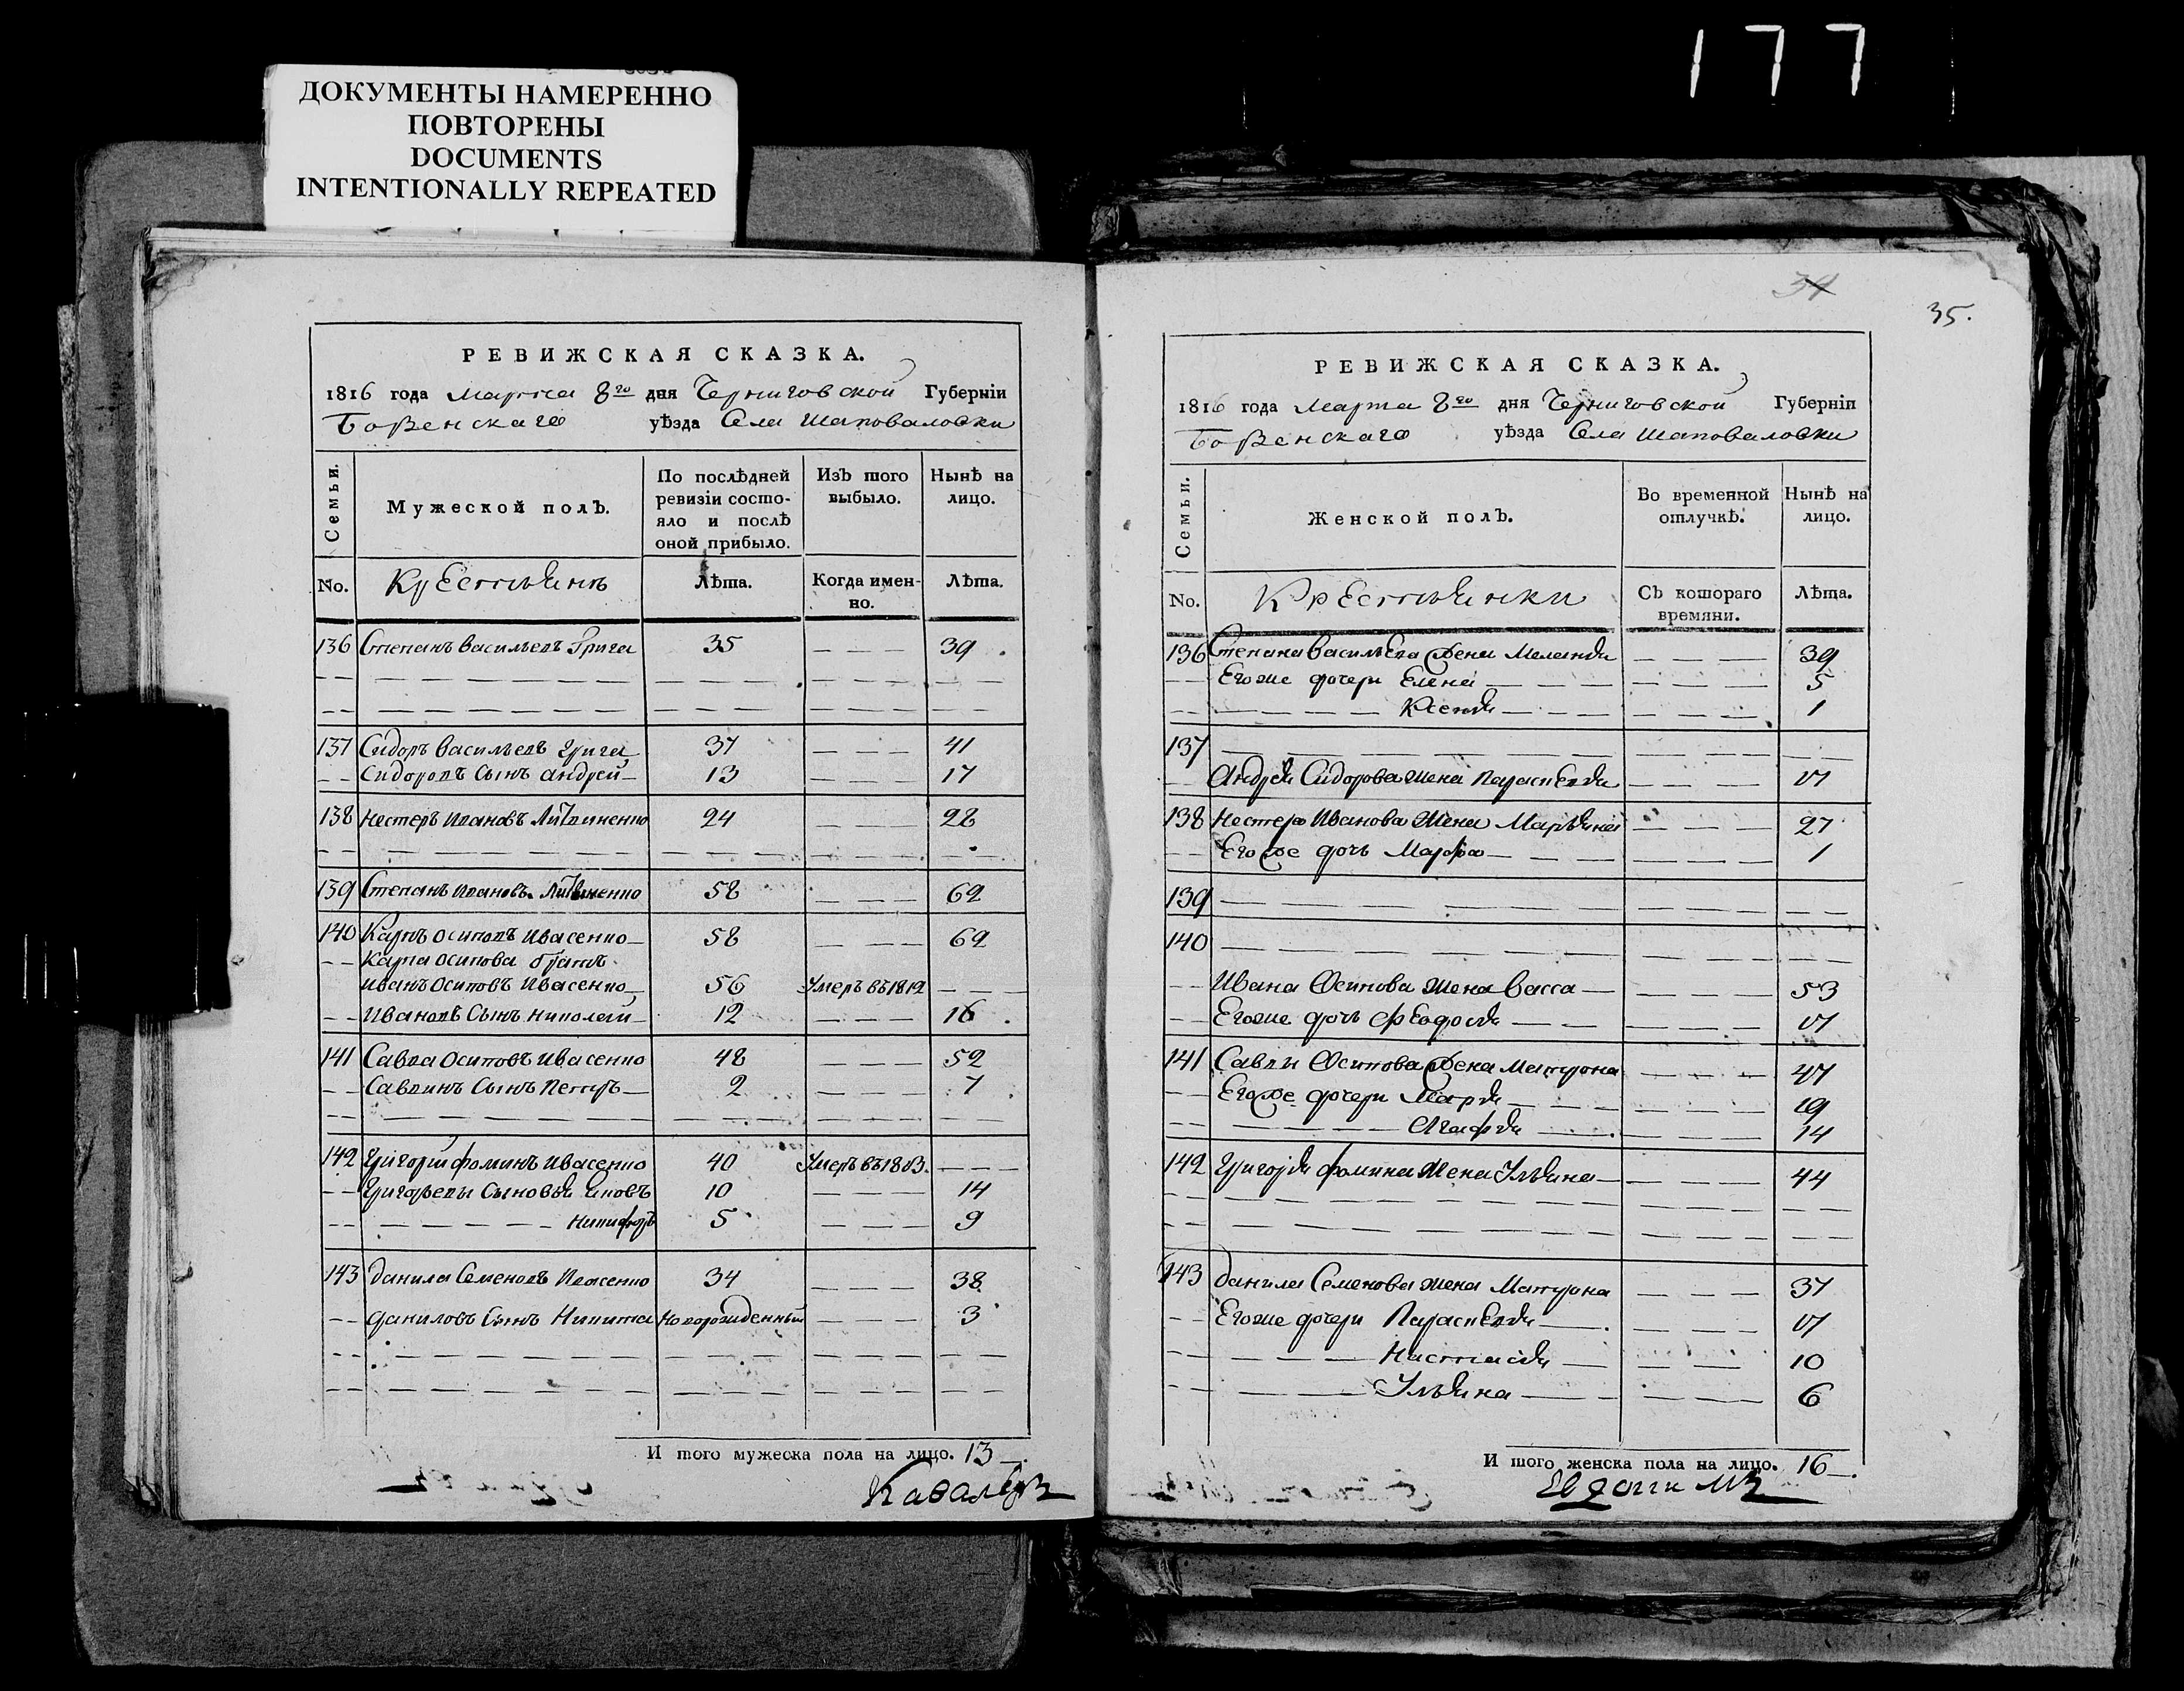 177
ДОКУМЕНТЫ НАМЕРЕННО
ПОВТОРЕНЫ
DOCUMENTS
INTENTIONALLY REPEATED
РЕВИЖСКАЯ СКАЗКА.
1816 года Марта 8го дня Черниговской Губерніи
Борзенскаго уѣзда Села Шаповаловки
Семьи.
Мужеской полъ.
По послѣдней ревизіи состояло и послѣ оной прибыло.
Изъ того выбыло.
Нынѣ на лицо.
No. Крестьянъ Лѣта. Когда именно. Лѣта.
136 Степанъ Васильевъ Грига 35 — — — 39
137 Сидоръ Васильевъ Грига 37 — — — 41
— — Сидоровъ Сынъ Андрей — 13 — — — 17
138 Нестеръ Ивановъ Литвиненко 24 — — — 28
139 Степанъ Ивановъ Литвиненко 58 — — — 62
140 Карпъ Осиповъ Ивасенко — 58 — — — 62
— — Карпа Осипова братъ
Иванъ Осиповъ Ивасенко — 56 Умеръ въ 1812 — — —
— — Ивановъ Сынъ Николай — 12 — — — 16
141 Савва Осиповъ Ивасенко 48 — — — 52
— — Саввинъ Сынъ Петръ — 2 — — — 7
142 Григорій Фоминъ Ивасенко 40 Умеръ въ 1813. — — —
— — Григорьевы Сыновья Яковъ 10 — — — 14
— — — — — — — Никифоръ 5 — — — 9
143 Данила Семеновъ Ивасенко 34 — — — 38
— — Даниловъ Сынъ Никита Новорожденный — — — 3
И того мужеска пола на лицо. 13
Кавалеръ
34
35.
РЕВИЖСКАЯ СКАЗКА.
1816 года Марта 8го дня Черниговской Губерніи
Борзенскаго уѣзда Села Шаповаловки
Семьи.
Женской полъ.
Во временной отлучкѣ.
Нынѣ на лицо.
No. Крестьянки Съ котораго времяни. Лѣта.
136 Степана Васильева Жена Меланья — — — 39
— — Егоже дочери Елена — — — 5
— — — — Ксенья — — — 1
137 — — — — — —
— — Андрея Сидорова Жена Параскевья — — — 17
138 Нестера Иванова Жена Марьяна — — — 27
— — Егоже дочь Марфа — — — 1
139 — — — — — —
140 — — — — — —
— — Ивана Осипова Жена Васса — — — — 53
— — Егоже дочь Феодосья — — — 17
141 Саввы Осипова Жена Матрона — — — 47
— — Егоже дочери Марья — — — 19
— — — — — Агафья — — — 14
142 Григорья Фомина Жена Ульяна — — — — 44
143 Данила Семенова Жена Матрона — — — 37
— — Егоже дочери Параскевья — — — 17
— — — — — Настасья — — — 10
— — — — — Ульяна — — — 6
И того женска пола на лицо. 16